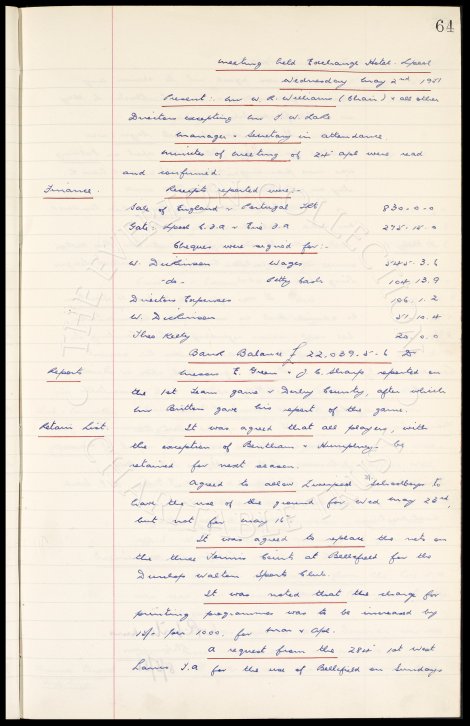 64
Meeting held Exchange Hotel. Lpool
Wednesday May 2nd 1951
Present: Mr W. R. Williams (Chair) & all other
Directors excepting Mr
Manager & Secretary in attendance
Minutes of Meeting of 24th Apl were read
and confirmed.
Finance. Receipts reported were:-
Sale of England v Portugal Tkts 830-0-0
Gate: Lpool C.F.A. v 275.15.0
Cheques were signed for:-
W. Dickinson Wages 545-3.6
-do- Petty Cash 104.13.9
Directors Expenses 106.1.2
W. Dickinson 51.10.4
Theo Kelly 20.0.0
Bank Balance £ 22,039.5.6
Reports Messrs E. Green & J. C. Sharp reported on
the 1st Team game v Derby County, after which
Mr Britton gave his report of the game.
Retain List. It was agreed that all players, with
the exception of Bentham & Humphreys be
retained for next season.
Agreed to allow Liverpool Schoolboys to
have the use of the ground for Wed May 23rd,
but not for May 15
It was agreed to replace the nets on
the three Tennis Courts at Bellefield for the
Dunlop Walton Sports Club.
It was noted that the charge for
printing programmes was to be increased by
per 1000, for Mar & Apl.
A request from the 284 1st West
Lancs for the use of Bellefield on Sundays